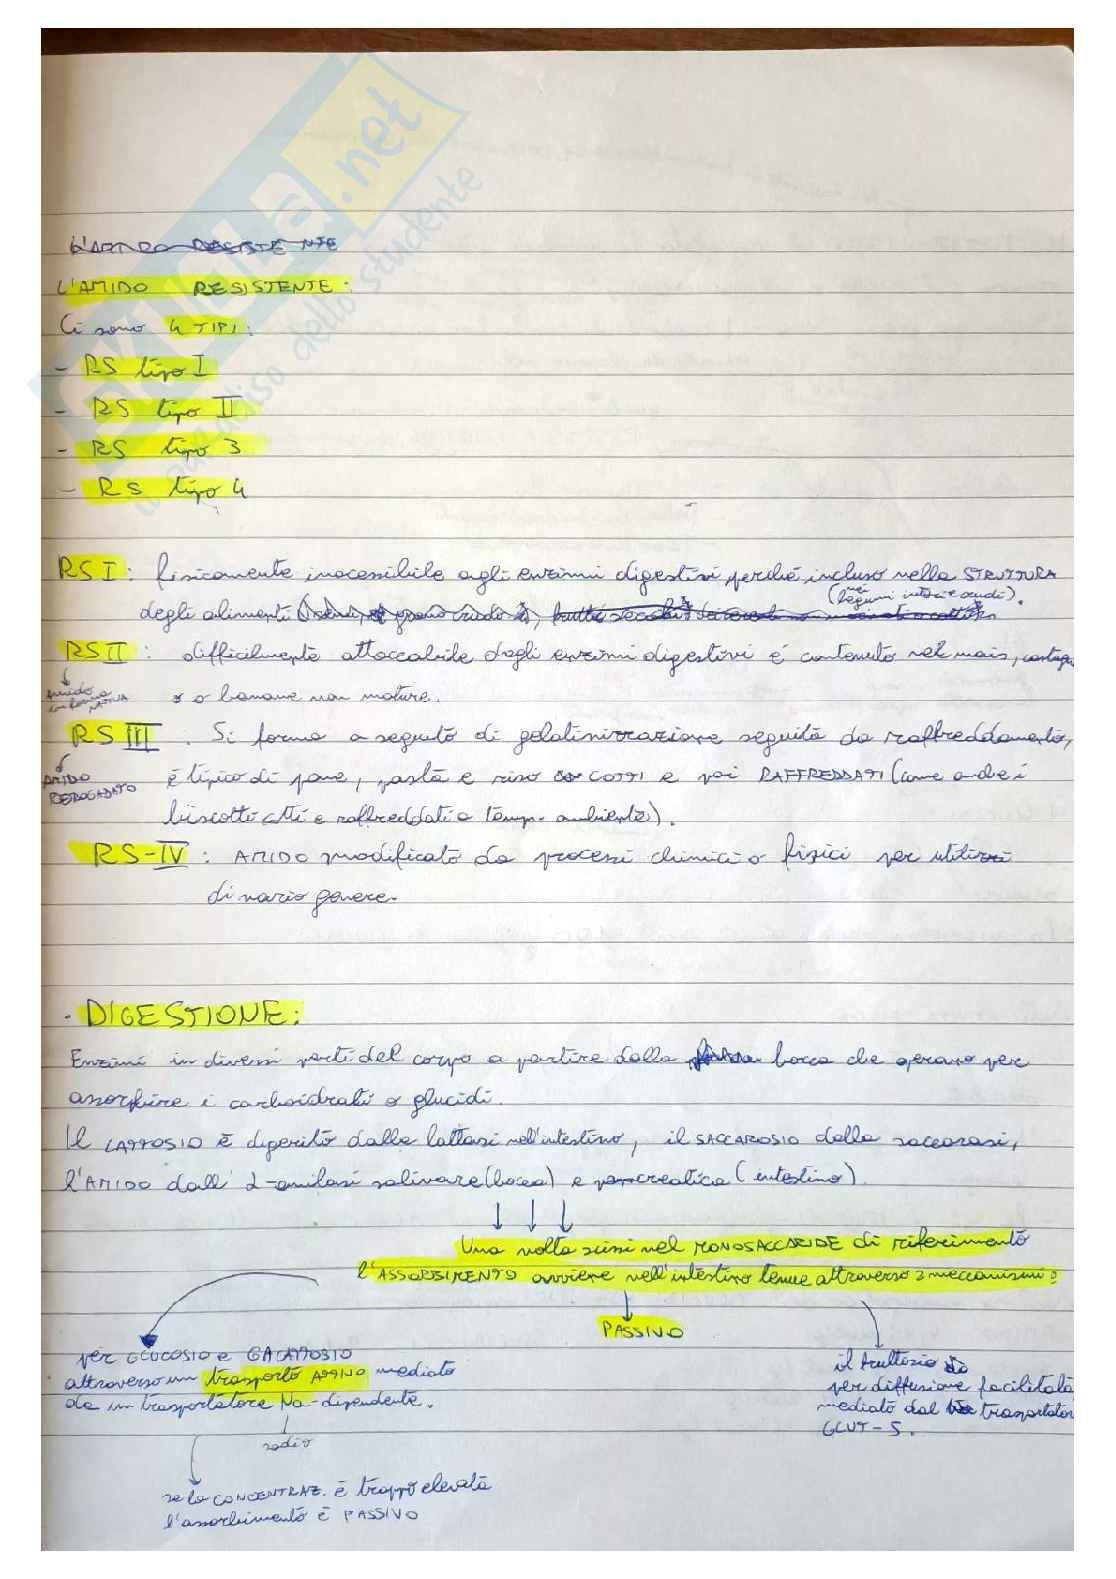 L'AMIDO RESISTENTE
L'AMIDO RESISTENTE:
Ci sono 4 TIPI:
- RS tipo I
- RS tipo II
- RS tipo 3
- RS tipo 4
RS I: fisicamente inacessibile agli enzimi digestivi perché incluso nella STRUTTURA
degli alimenti (nei legumi interi e crudi).
RS II: difficilmente attaccabile dagli enzimi digestivi é contenuto nel mais,
amido in forma NATIVA
o banane non mature.
RS III. Si forma a seguito di gelatinizzazione seguita da raffreddamento,
AMIDO RETROGADATO
è tipico di pane, pasta e riso COTTI e poi RAFFREDDATI (come anche i
biscotti cotti e raffreddati a temp. ambiente).
RS-IV: AMIDO modificato da processi chimici o fisici per utilizzi
di vario genere.
. DIGESTIONE:
Enzimi in diversi parti del corpo a partire dalla bocca che operano per
assorbire i carboidrati o glucidi.
Il LATTOSIO è digerito dalla lattasi nell'intestino, il SACCAROSIO dalla saccarasi,
l'AMIDO dall' α-amilasi salivare (bocca) e pancreatica (intestino).
Una volta scissi nel MONOSACCARIDE di riferimento
l'ASSORBIMENTO avviene nell'intestino tenue attraverso 3 meccanismi:
PASSIVO
per GLUCOSIO e GALATTOSIO
attraverso un trasporto ATTIVO mediato
da un trasportatore Na-dipendente.
sodio
se la CONCENTRAZ. è troppo elevata
l'assorbimento è PASSIVO
il fruttosio
per diffusione facilitata
mediato dal trasportator
GLUT-5.
SKUOLA.net
il paradiso dello studente